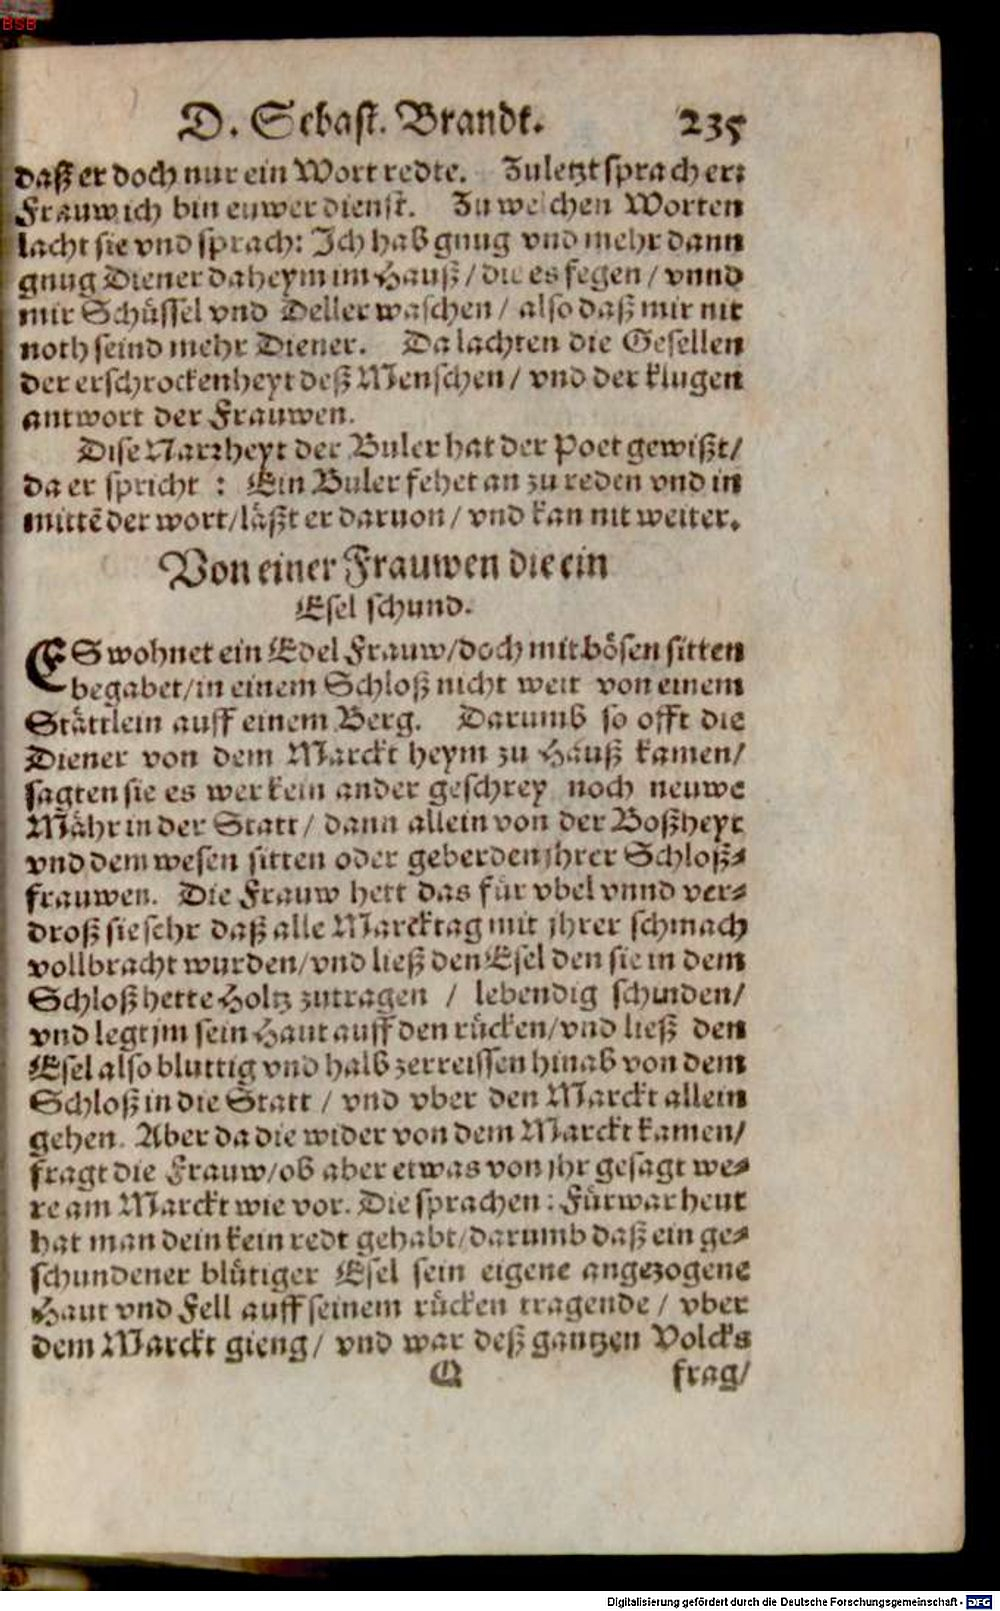 BSB
D. Sebast. Brandt. 235
daß er doch nur ein Wort redte. Zuletzt sprach er:
Frauw ich bin euwer dienst. Zu welchen Worten
lacht sie vnd sprach: Ich hab gnug vnd mehr dann
gnug Diener daheym im Hauß / die es fegen / vnnd
mir Schüssel vnd Deller waschen / also daß mir nit
noth seind mehr Diener. Da lachten die Gesellen
der erschrockenheyt deß Menschen / vnd der klugen
antwort der Frauwen.
Dise Narrheyt der Buler hat der Poet gewißt /
da er spricht : Ein Buler fehet an zu reden vnd in
mittē der wort / läßt er daruon / vnd kan nit weiter.
Von einer Frauwen die ein
Esel schund.
ES wohnet ein Edel Frauw / doch mit bösen sitten
begabet / in einem Schloß nicht weit von einem
Stättlein auff einem Berg. Darumb so offt die
Diener von dem Marckt heym zu Hauß kamen /
sagten sie es wer kein ander geschrey noch neuwe
Mähr in der Statt / dann allein von der Boßheyt
vnd dem wesen sitten oder geberden jhrer Schloß-
frauwen. Die Frauw hett das für vbel vnnd ver-
droß sie sehr daß alle Marcktag mit jhrer schmach
vollbracht wurden / vnd ließ den Esel den sie in dem
Schloß hette Holtz zutragen / lebendig schinden /
vnd legt jm sein Haut auff den rücken / vnd ließ den
Esel also bluttig vnd halb zerreissen hinab von dem
Schloß in die Statt / vnd vber den Marckt allein
gehen. Aber da die wider von dem Marckt kamen /
fragt die Frauw / ob aber etwas von jhr gesagt we-
re am Marckt wie vor. Die sprachen : Fürwar heut
hat man dein kein redt gehabt / darumb daß ein ge-
schundener blütiger Esel sein eigene angezogene
Haut vnd Fell auff seinem rücken tragende / vber
dem Marckt gieng / vnd war deß gantzen Volcks
Q frag /
Digitalisierung gefördert durch die Deutsche Forschungsgemeinschaft - DFG